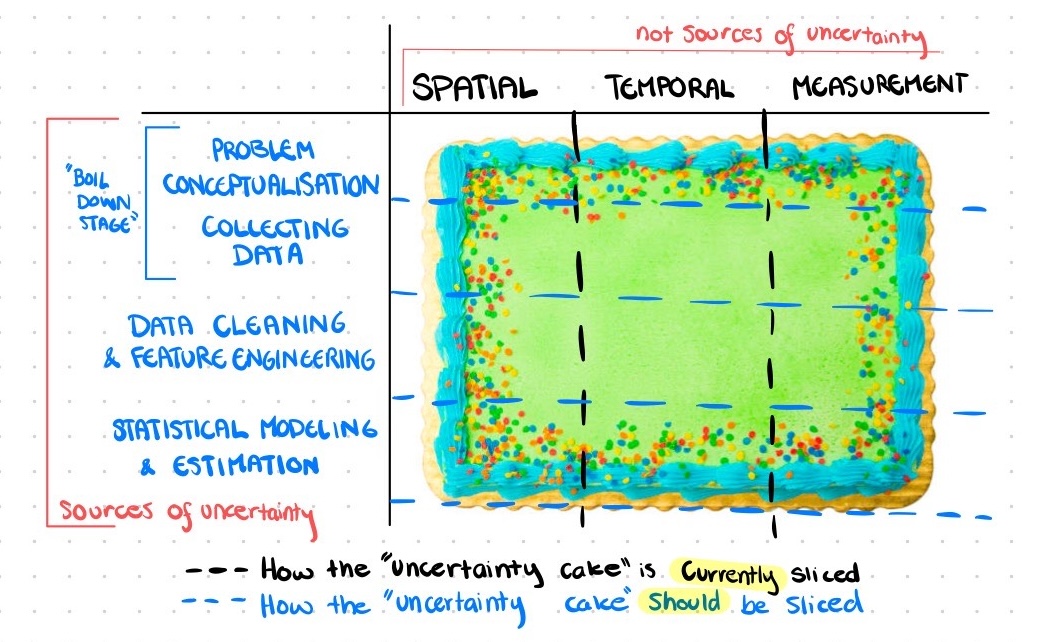 not sources of uncertainty
SPATIAL TEMPORAL MEASUREMENT
"BOIL
DOWN
STAGE"
PROBLEM
CONCEPTUALISATION
COLLECTING
DATA
DATA CLEANING
& FEATURE ENGINEERING
STATISTICAL MODELING
& ESTIMATION
Sources of uncertainty
How the "uncertainty cake" is Currently sliced
How the "uncertainty cake" Should be sliced